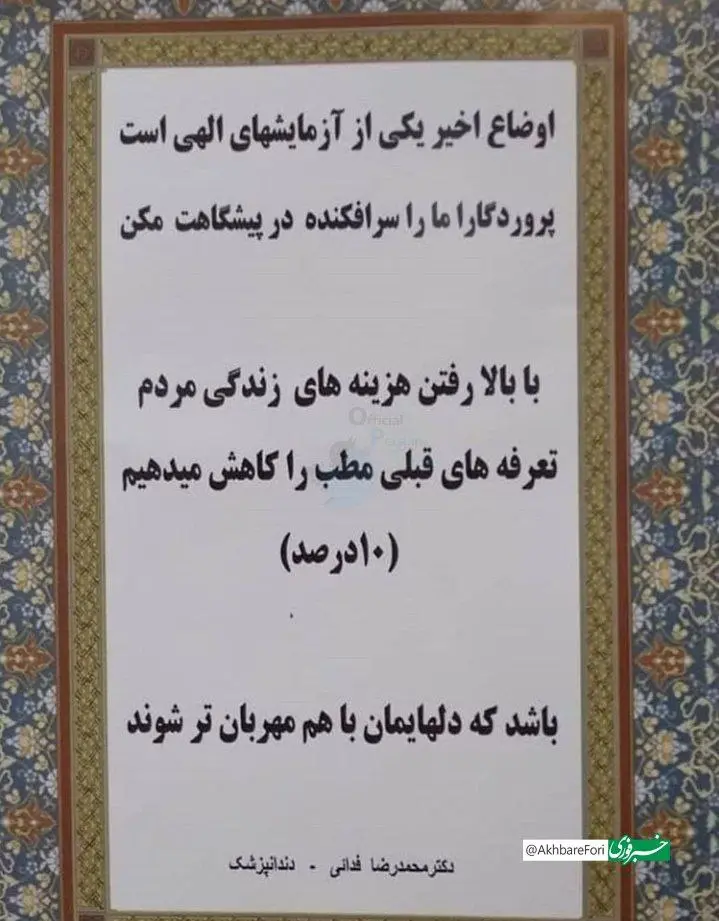 اوضاع اخیر یکی از آزمایشهای الهی است
پروردگارا ما را سرافکنده در پیشگاهت مکن
با بالا رفتن هزینه های زندگی مردم
تعرفه های قبلی مطب را کاهش میدهیم
(۱۰درصد)
باشد که دلهایمان با هم مهربان تر شوند
دکترمحمدرضا فدائی - دندانپزشک
@AkhbareFori خبرفوری
Official